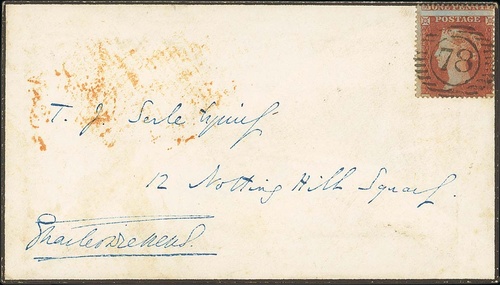 ONE PENNY
POSTAGE
78
T. J. Serle Esquire
12 Notting Hill Square.
Charles Dickens.